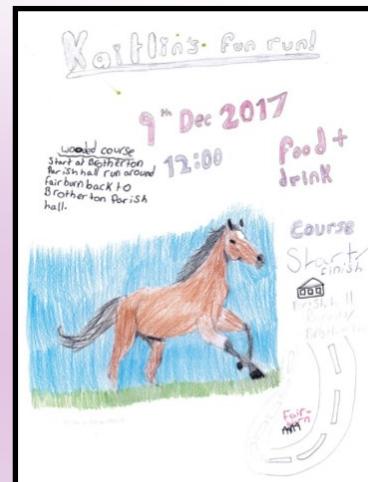 Kaitlin's fun run!
9th Dec 2017
12:00
food +
drink
Start at Brotherton
Parish hall run around
fairburn back to
Brotherton Parish
hall.
Course
Start/
finish
Fair-
burn